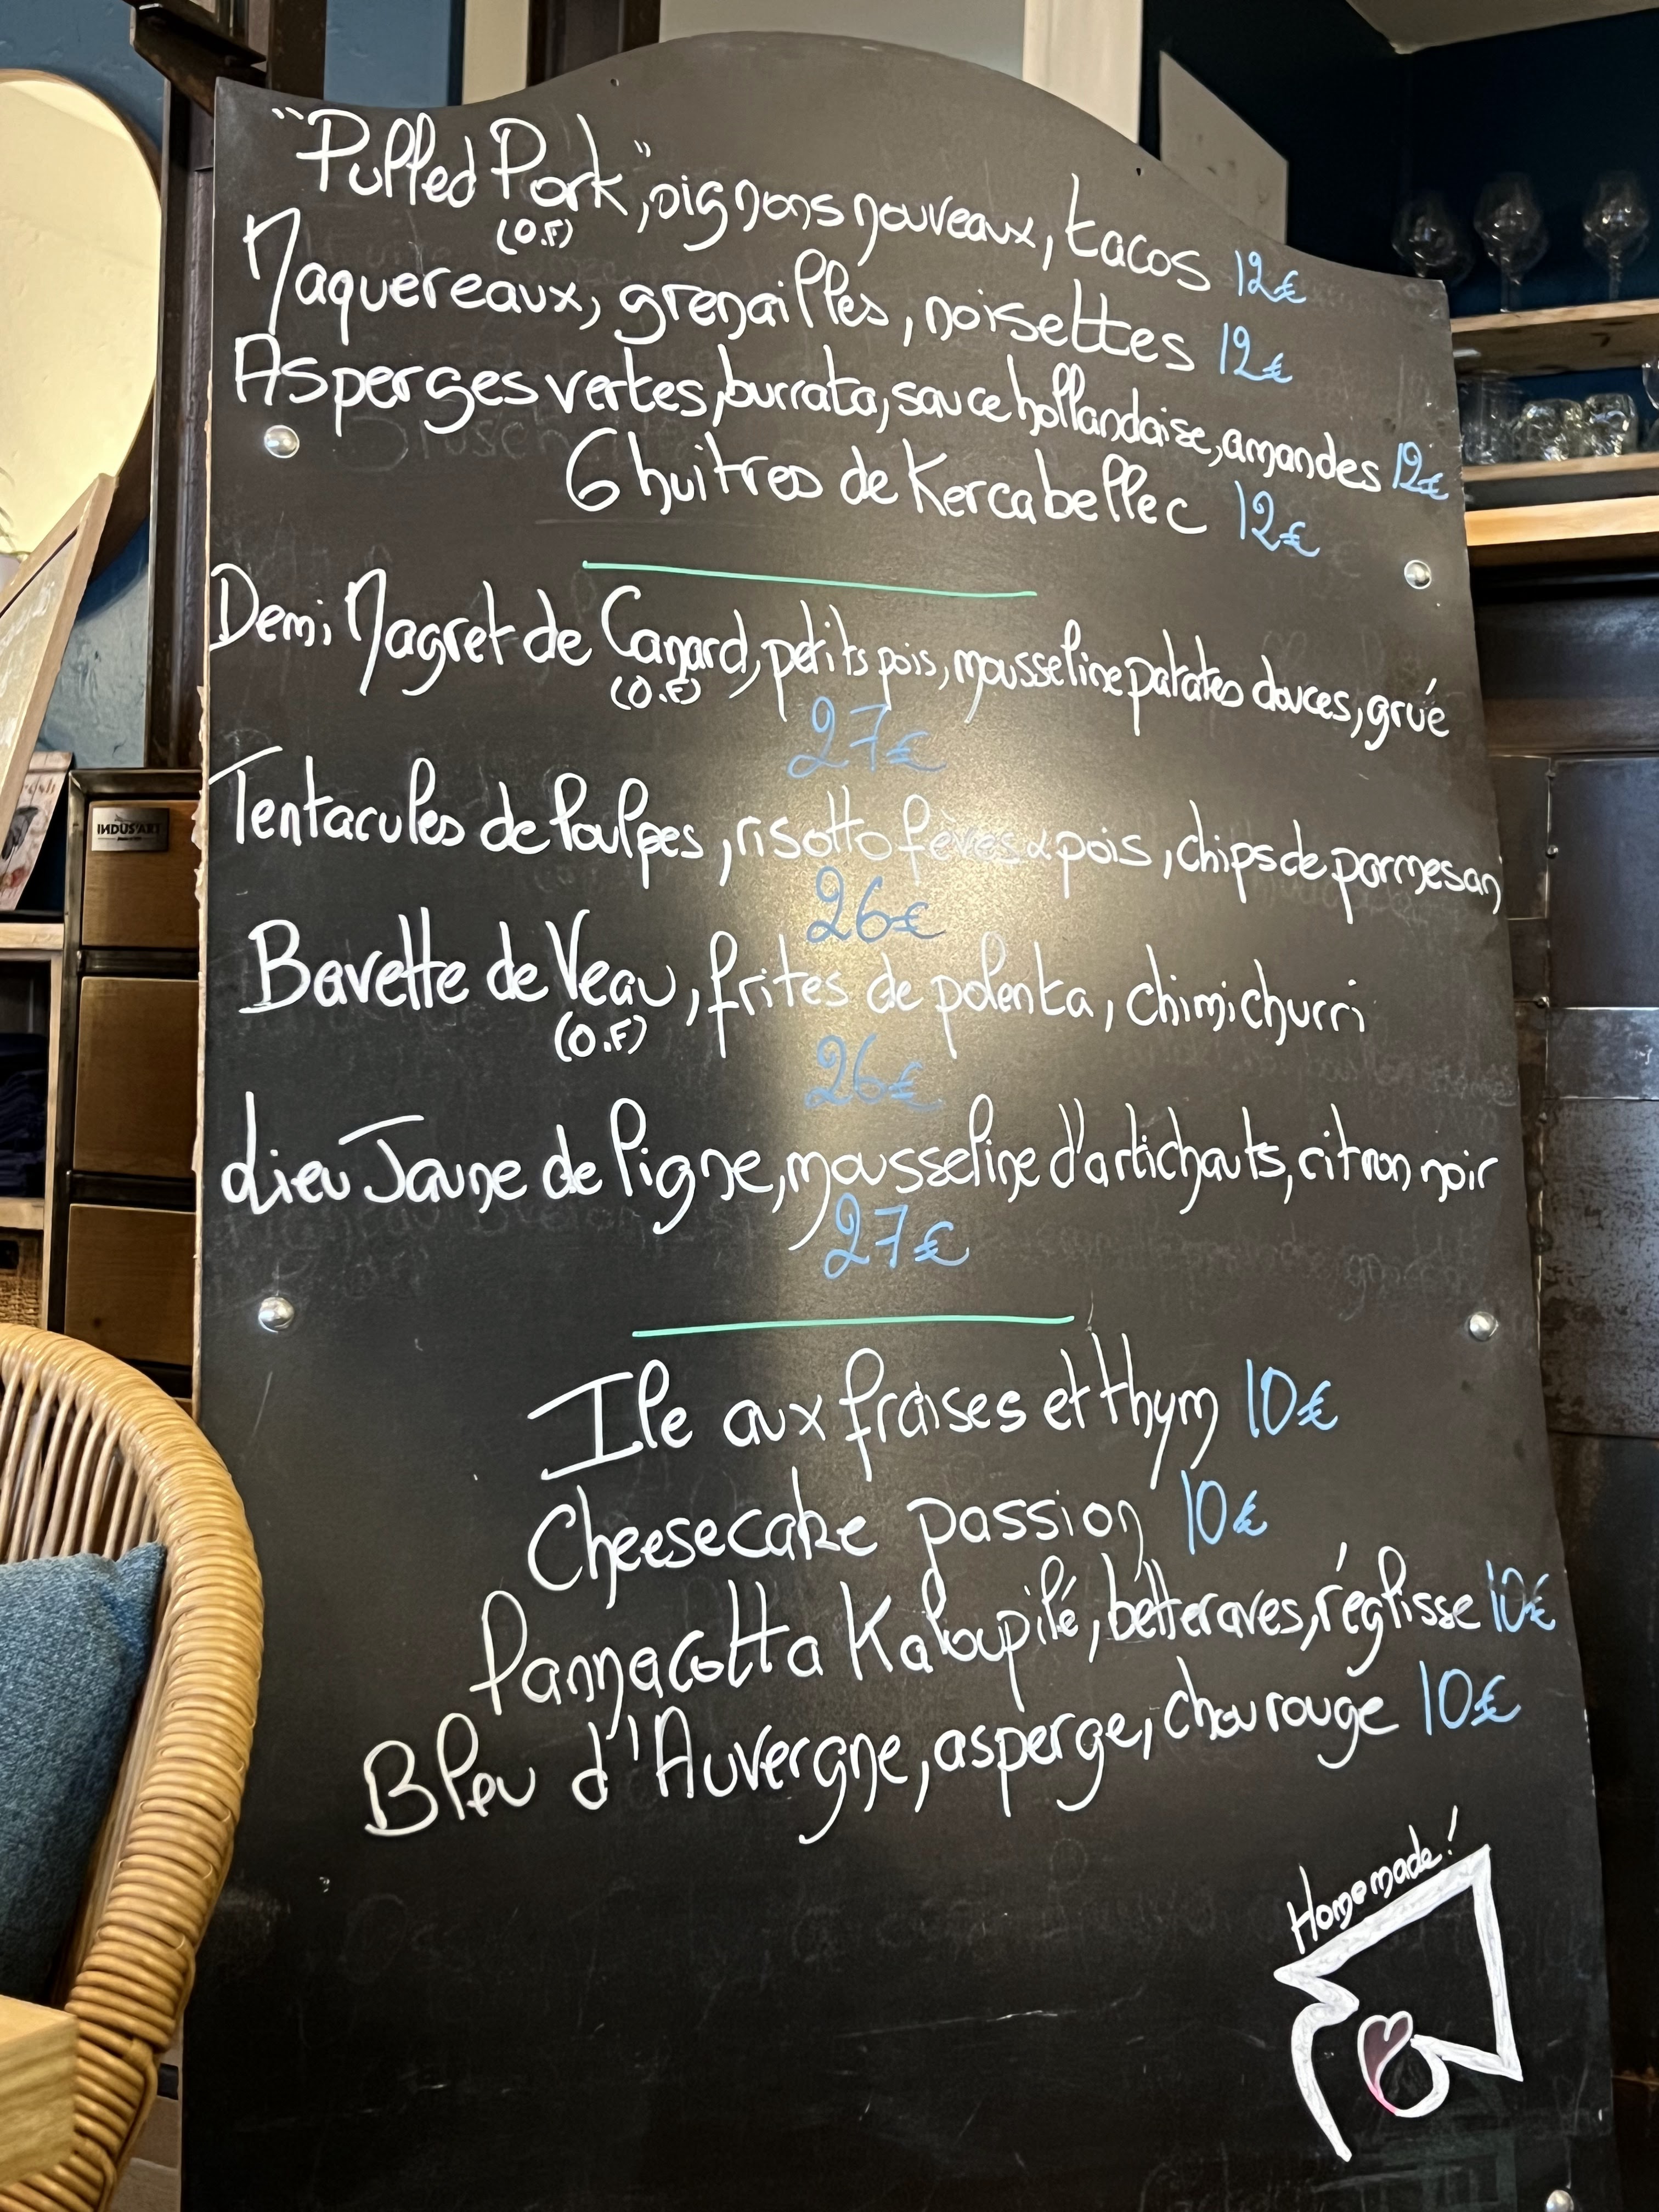 "Pulled Pork", oignons nouveaux, tacos 12€
(O.F)
Maquereaux, grenailles, noisettes 12€
Asperges vertes, burrata, sauce hollandaise, amandes 12€
6 huitres de Kercabellec 12€
Demi Magret de Canard, petits pois, mousseline patates douces, grué
(O.F)
27€
Tentacules de Poulpes, risotto fèves & pois, chips de parmesan
26€
Bavette de Veau, frites de polenta, chimichurri
(O.F)
26€
Lieu Jaune de Ligne, mousseline d'artichauts, citron noir
27€
Ile aux fraises et thym 10€
Cheesecake passion 10€
Pannacotta Kaloupilé, betteraves, réglisse 10€
Bleu d'Auvergne, asperge, chou rouge 10€
Homemade!
INDUS'ART